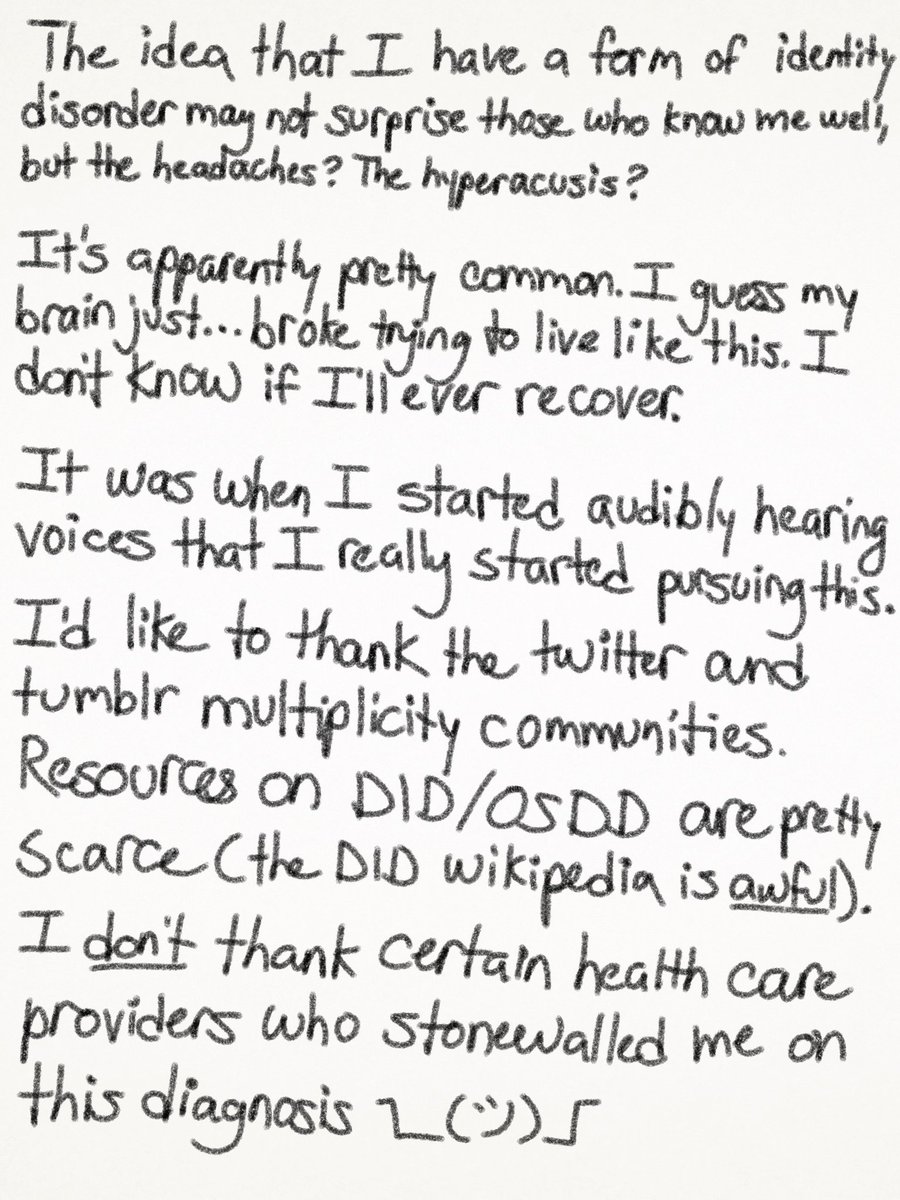 The idea that I have a form of identity
disorder may not surprise those who know me well,
but the headaches? The hyperacusis?
It's apparently pretty common. I guess my
brain just... broke trying to live like this. I
don't know if I'll ever recover.
It was when I started audibly hearing
voices that I really started pursuing this.
I'd like to thank the twitter and
tumblr multiplicity communities.
Resources on DID/OSDD are pretty
scarce (the DID wikipedia is awful).
I don't thank certain health care
providers who stonewalled me on
this diagnosis ¯\_(ツ)_/¯